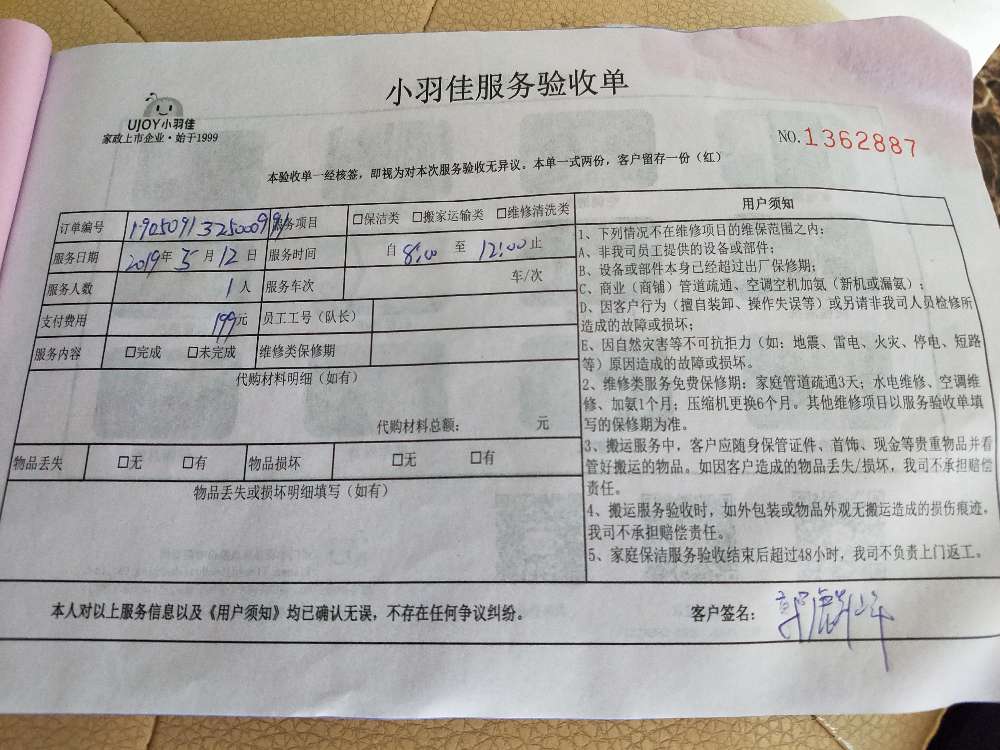 小羽佳服务验收单
UJOY小羽佳
家政上市企业·始于1999
NO.1362887
本验收单一经核签，即视为对本次服务验收无异议。本单一式两份，客户留存一份（红）
订单编号 服务项目 □保洁类 □搬家运输类 □维修清洗类
服务日期 2019年5月12日 服务时间 自 8:00 至 12:00 止
服务人数 1人 服务车次 车/次
支付费用 199元 员工工号（队长）
服务内容 □完成 □未完成 维修类保修期
代购材料明细（如有）
代购材料总额： 元
物品丢失 □无 □有 物品损坏 □无 □有
物品丢失或损坏明细填写（如有）
用户须知
1、下列情况不在维修项目的维保范围之内：
A、非我司员工提供的设备或部件；
B、设备或部件本身已经超过出厂保修期；
C、商业（商铺）管道疏通、空调空机加氨（新机或漏氨）；
D、因客户行为（擅自装卸、操作失误等）或另请非我司人员检修所
造成的故障或损坏；
E、因自然灾害等不可抗拒力（如：地震、雷电、火灾、停电、短路
等）原因造成的故障或损坏。
2、维修类服务免费保修期：家庭管道疏通3天；水电维修、空调维
修、加氨1个月；压缩机更换6个月。其他维修项目以服务验收单填
写的保修期为准。
3、搬运服务中，客户应随身保管证件、首饰、现金等贵重物品并看
管好搬运的物品。如因客户造成的物品丢失/损坏，我司不承担赔偿
责任。
4、搬运服务验收时，如外包装或物品外观无搬运造成的损伤痕迹，
我司不承担赔偿责任。
5、家庭保洁服务验收结束后超过48小时，我司不负责上门返工。
本人对以上服务信息以及《用户须知》均已确认无误，不存在任何争议纠纷。
客户签名：